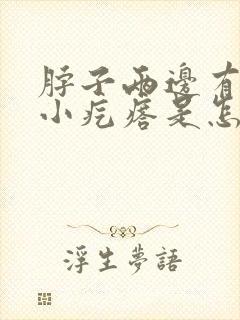 脖子兩邊有
小疙瘩是怎
浮生夢語